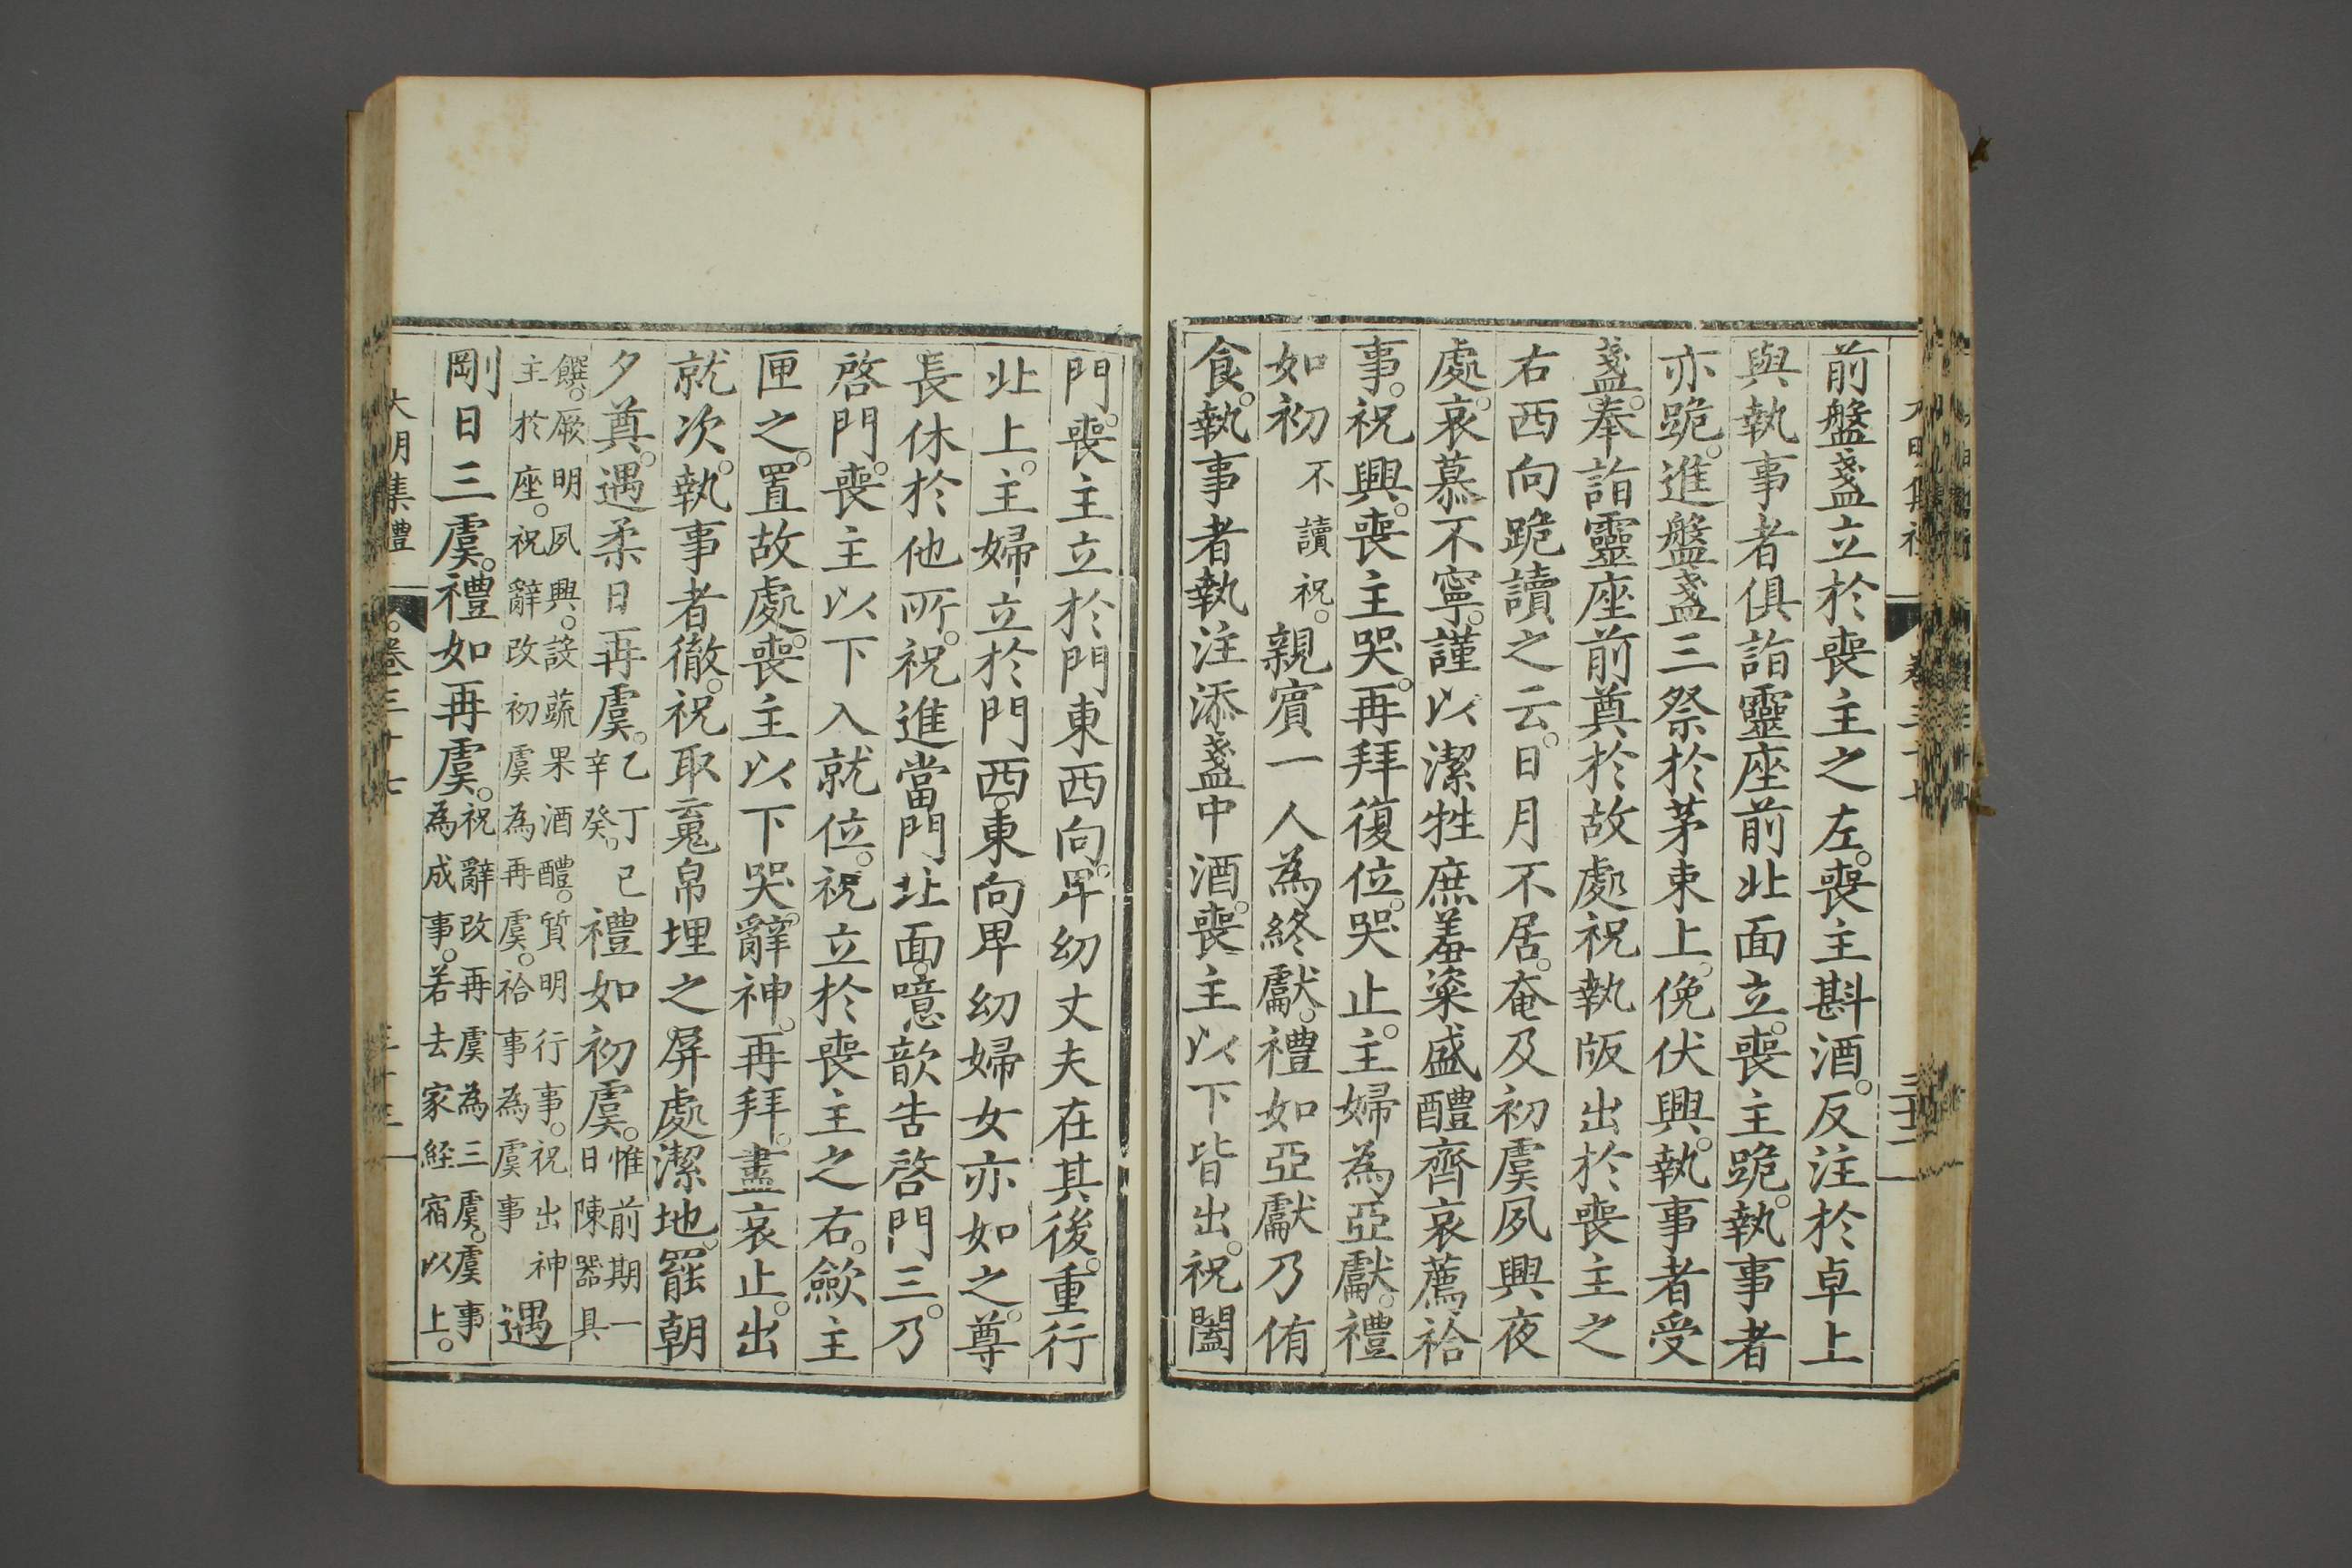 前盤盞立於喪主之左。喪主斟酒。反注於卓上
與執事者俱詣靈座前北面立。喪主跪。執事者
亦跪。進盤盞三祭於茅束上。俛伏興。執事者受
盞。奉詣靈座前奠於故處祝執版出於喪主之
右西向跪讀之云。日月不居。奄及初虞夙興夜
處。哀慕不寧。謹以潔牲庶羞粢盛醴齊哀薦祫
事。祝興。喪主哭。再拜復位。哭止。主婦為亞獻。禮
如初不讀祝。親賓一人為終獻。禮如亞獻乃侑
食。執事者執注添盞中酒。喪主以下皆出。祝闔
門。喪主立於門東西向。卑幼丈夫在其後。重行
北上。主婦立於門西。東向卑幼婦女亦如之。尊
長休於他所。祝進當門北面。噫歆告啓門三。乃
啓門。喪主以下入就位。祝立於喪主之右。歛主
匣之。置故處。喪主以下哭。辭神。再拜。盡哀止。出
就次。執事者徹。祝取䰟帛埋之屏處潔地。罷朝
夕奠。遇柔日再虞。乙丁己
辛癸。禮如初虞。惟前期一
日陳器具
饌。厥明夙興。設蔬果酒醴。質明行事。祝出神
主於座。祝辭改初虞為再虞。祫事為虞事遇
剛日三虞。禮如再虞。祝辭改再虞為三虞。虞事
為成事。若去家経宿以上。
大明集禮
卷三十七